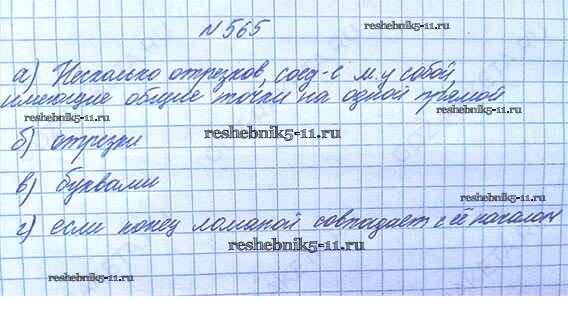 №565
reshebnik5-11.ru
а) Несколько отрезков, соед-е м.у собой,
имеющие общие точки на одной прямой
reshebnik5-11.ru
reshebnik5-11.ru
б) отрезки
reshebnik5-11.ru
в) буквами
reshebnik5-11.ru
г) если конец ломаной совпадает с её началом
reshebnik5-11.ru
reshebnik5-11.ru